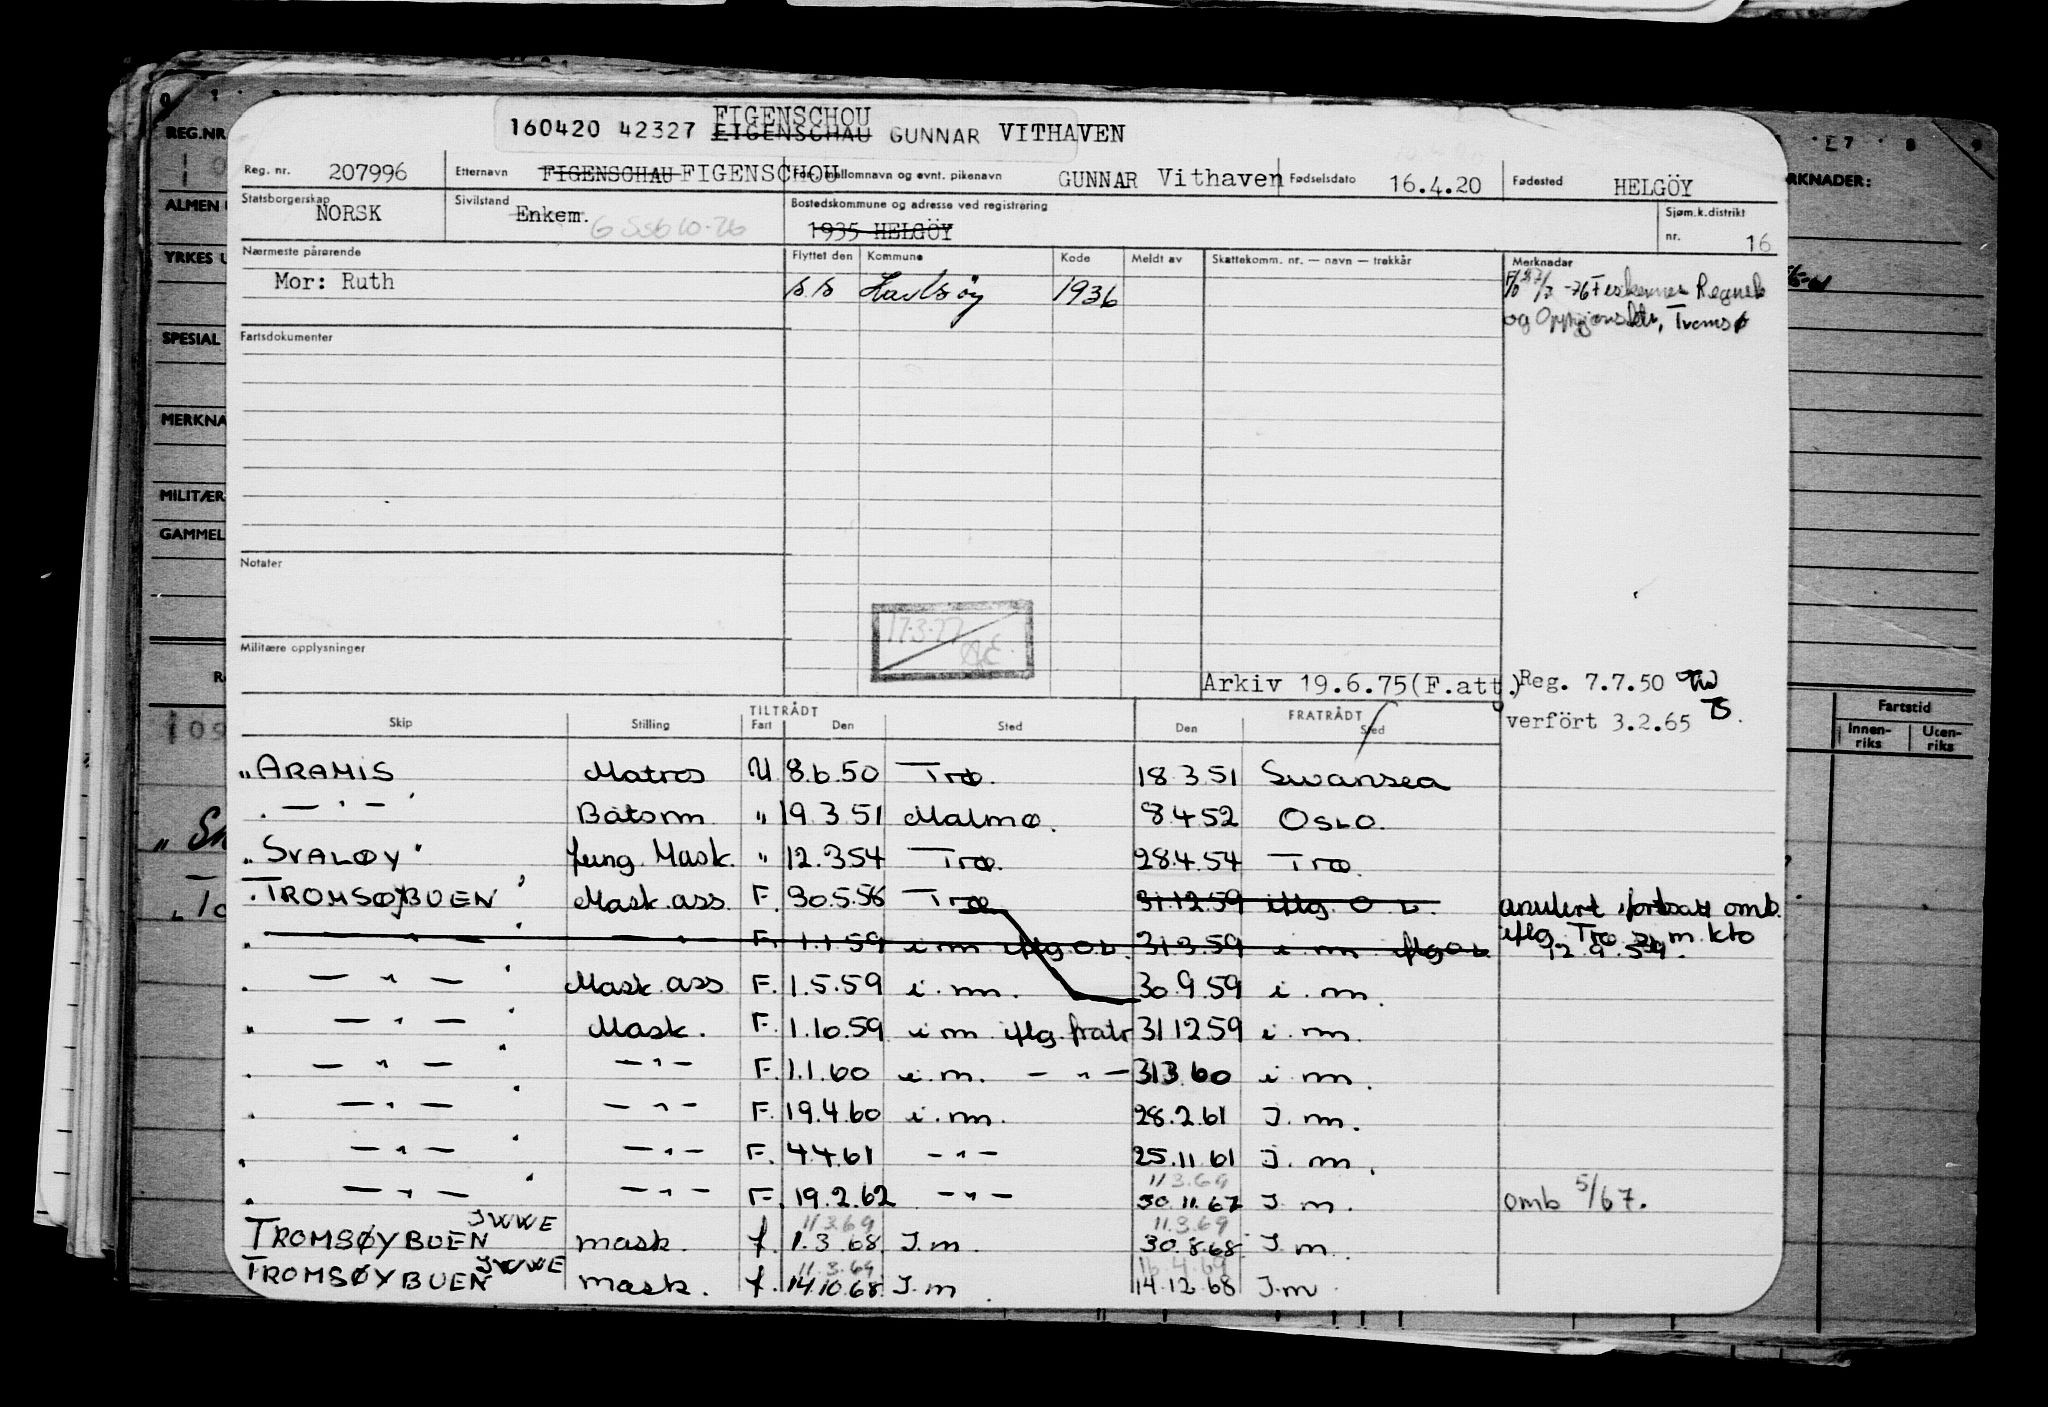 FIGENSCHOU
160420 42327 EIGENSCHAU GUNNAR VITHAVEN
REG.NR
Reg. nr. 207996 Etternavn FIGENSCHAU FIGENSCHOU mellomnavn og evnt. pikenavn GUNNAR Vithaven Fødselsdato 16.4.20 Fødested HELGÖY
RKNADER:
ALMEN
Statsborgerskap NORSK Sivilstand Enkem. Bostedskommune og adresse ved registrering 1935 HELGÖY Sjøm.k.distrikt nr. 16
YRKES
Nærmeste pårørende Flyttet den Kommune Kode Meldt av Skattekomm. nr. — navn — trekkår Merknader
Mor: Ruth 1936
Tromsø
SPESIAL
Fartsdokumenter
MERKNA
MILITÆR
GAMMEL
Notater
17.3.77
Militære opplysninger
Arkiv 19.6.75(F.att.) Reg. 7.7.50
verfört 3.2.65
Fartstid
Innen-riks Uten-riks
TILTRÅDT FRATRÅDT
Skip Stilling Fart Den Sted Den Sted
"ARAMIS Matros U 8.6.50 Trø. 18.3.51 Swansea
— " — Båtsm. " 19.3.51 Malmø. 8.4.52 OSLO.
"SVALØY" Jung. Mask. " 12.3.54 Trø. 28.4.54 Trø.
"TROMSØYBUEN" Mask.ass. F. 30.5.56 Trø 31.12.59 iflg. O.b. anulert fortsatt omb.
— " — — " — F. 1.1.59 i.m iflg O.b. 31.3.59 i.m iflg O.b. iflg. Trø s.m.kto
12.9.59.
— " — Mask.ass F. 1.5.59 i.m. 30.9.59 i.m.
— " — Mask. F. 1.10.59 i.m iflg. fratr 31.12.59 i.m.
— " — — " — F. 1.1.60 i.m. — " — 31.3.60 i.m.
— " — — " — F. 19.4.60 i.m. 28.2.61 I.m.
— " — — " — F. 4.4.61 — " — 25.11.61 I.m.
11.3.69
— " — — " — F. 19.2.62 — " — 30.11.67 I.m. omb 5/67.
JWWE 11.3.69 11.3.69
TROMSØYBUEN mask. f. 1.3.68 I.m. 30.8.68 I.m.
JWWE 11.3.69 16.4.69
TROMSØYBUEN mask. f. 14.10.68 I.m. 14.12.68 I.m